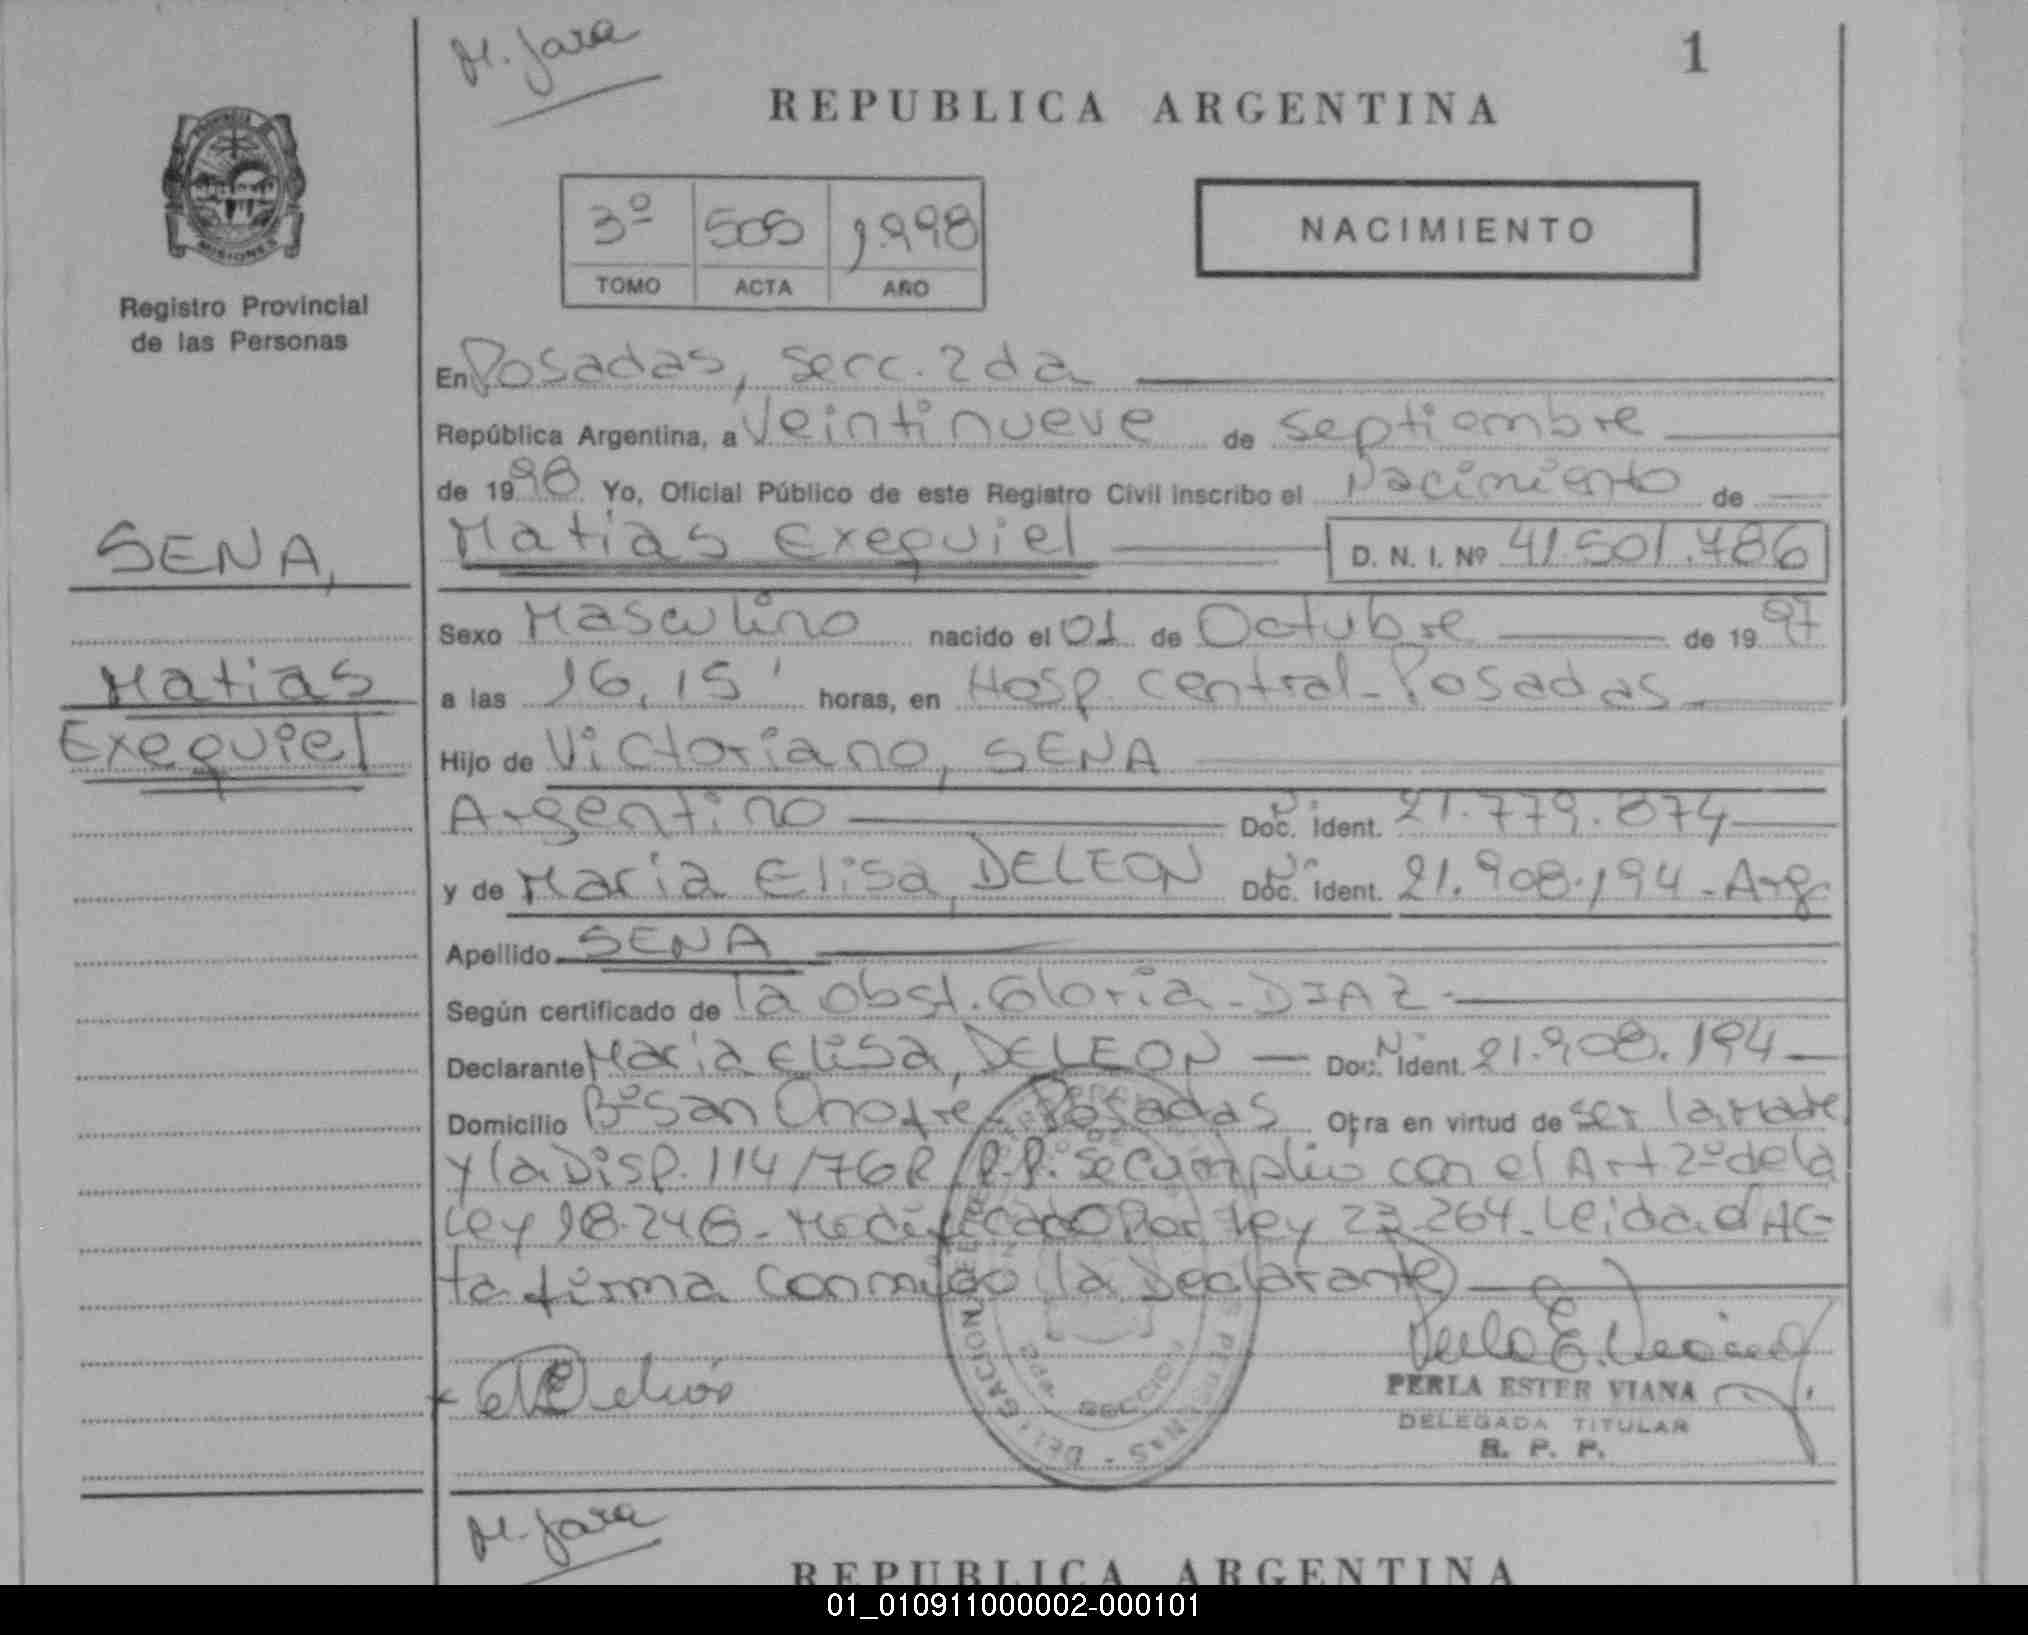 M. Jara
1
REPUBLICA ARGENTINA
PROVINCIA
MISIONES
Registro Provincial
de las Personas
3º 505 1998
TOMO ACTA AÑO
NACIMIENTO
En Posadas, Secc. 2da
República Argentina, a Veintinueve de Septiembre
de 1998 Yo, Oficial Público de este Registro Civil inscribo el Nacimiento de
SENA,
Matias Exequiel D. N. I. Nº 41.501.786
Sexo Masculino nacido el 01 de Octubre de 1997
Matias
a las 16,15' horas, en Hosp. Central-Posadas
Exequiel
Hijo de Victoriano, SENA
Argentino Doc. Ident. 21.779.874
y de Maria Elisa, DELEON Doc. Ident. 21.908.194 - Arg
Apellido SENA
Según certificado de la Obst. Gloria - DIAZ -
Declarante Maria Elisa, DELEON Doc. Ident. 21.908.194
Domicilio Bº San Onofre - Posadas Otra en virtud de ser la Madre
y la Disp. 114/76 R.P.P. Se cumplió con el Art 2º de la
Ley 18.248 - Modificado Por Ley 23.264 - Leida el AC-
ta firma conmigo la Declarante
PERLA ESTER VIANA
DELEGADA TITULAR
R. P. P.
DELEGACION
SECCION
M. Jara
REPUBLICA ARGENTINA
01_010911000002-000101